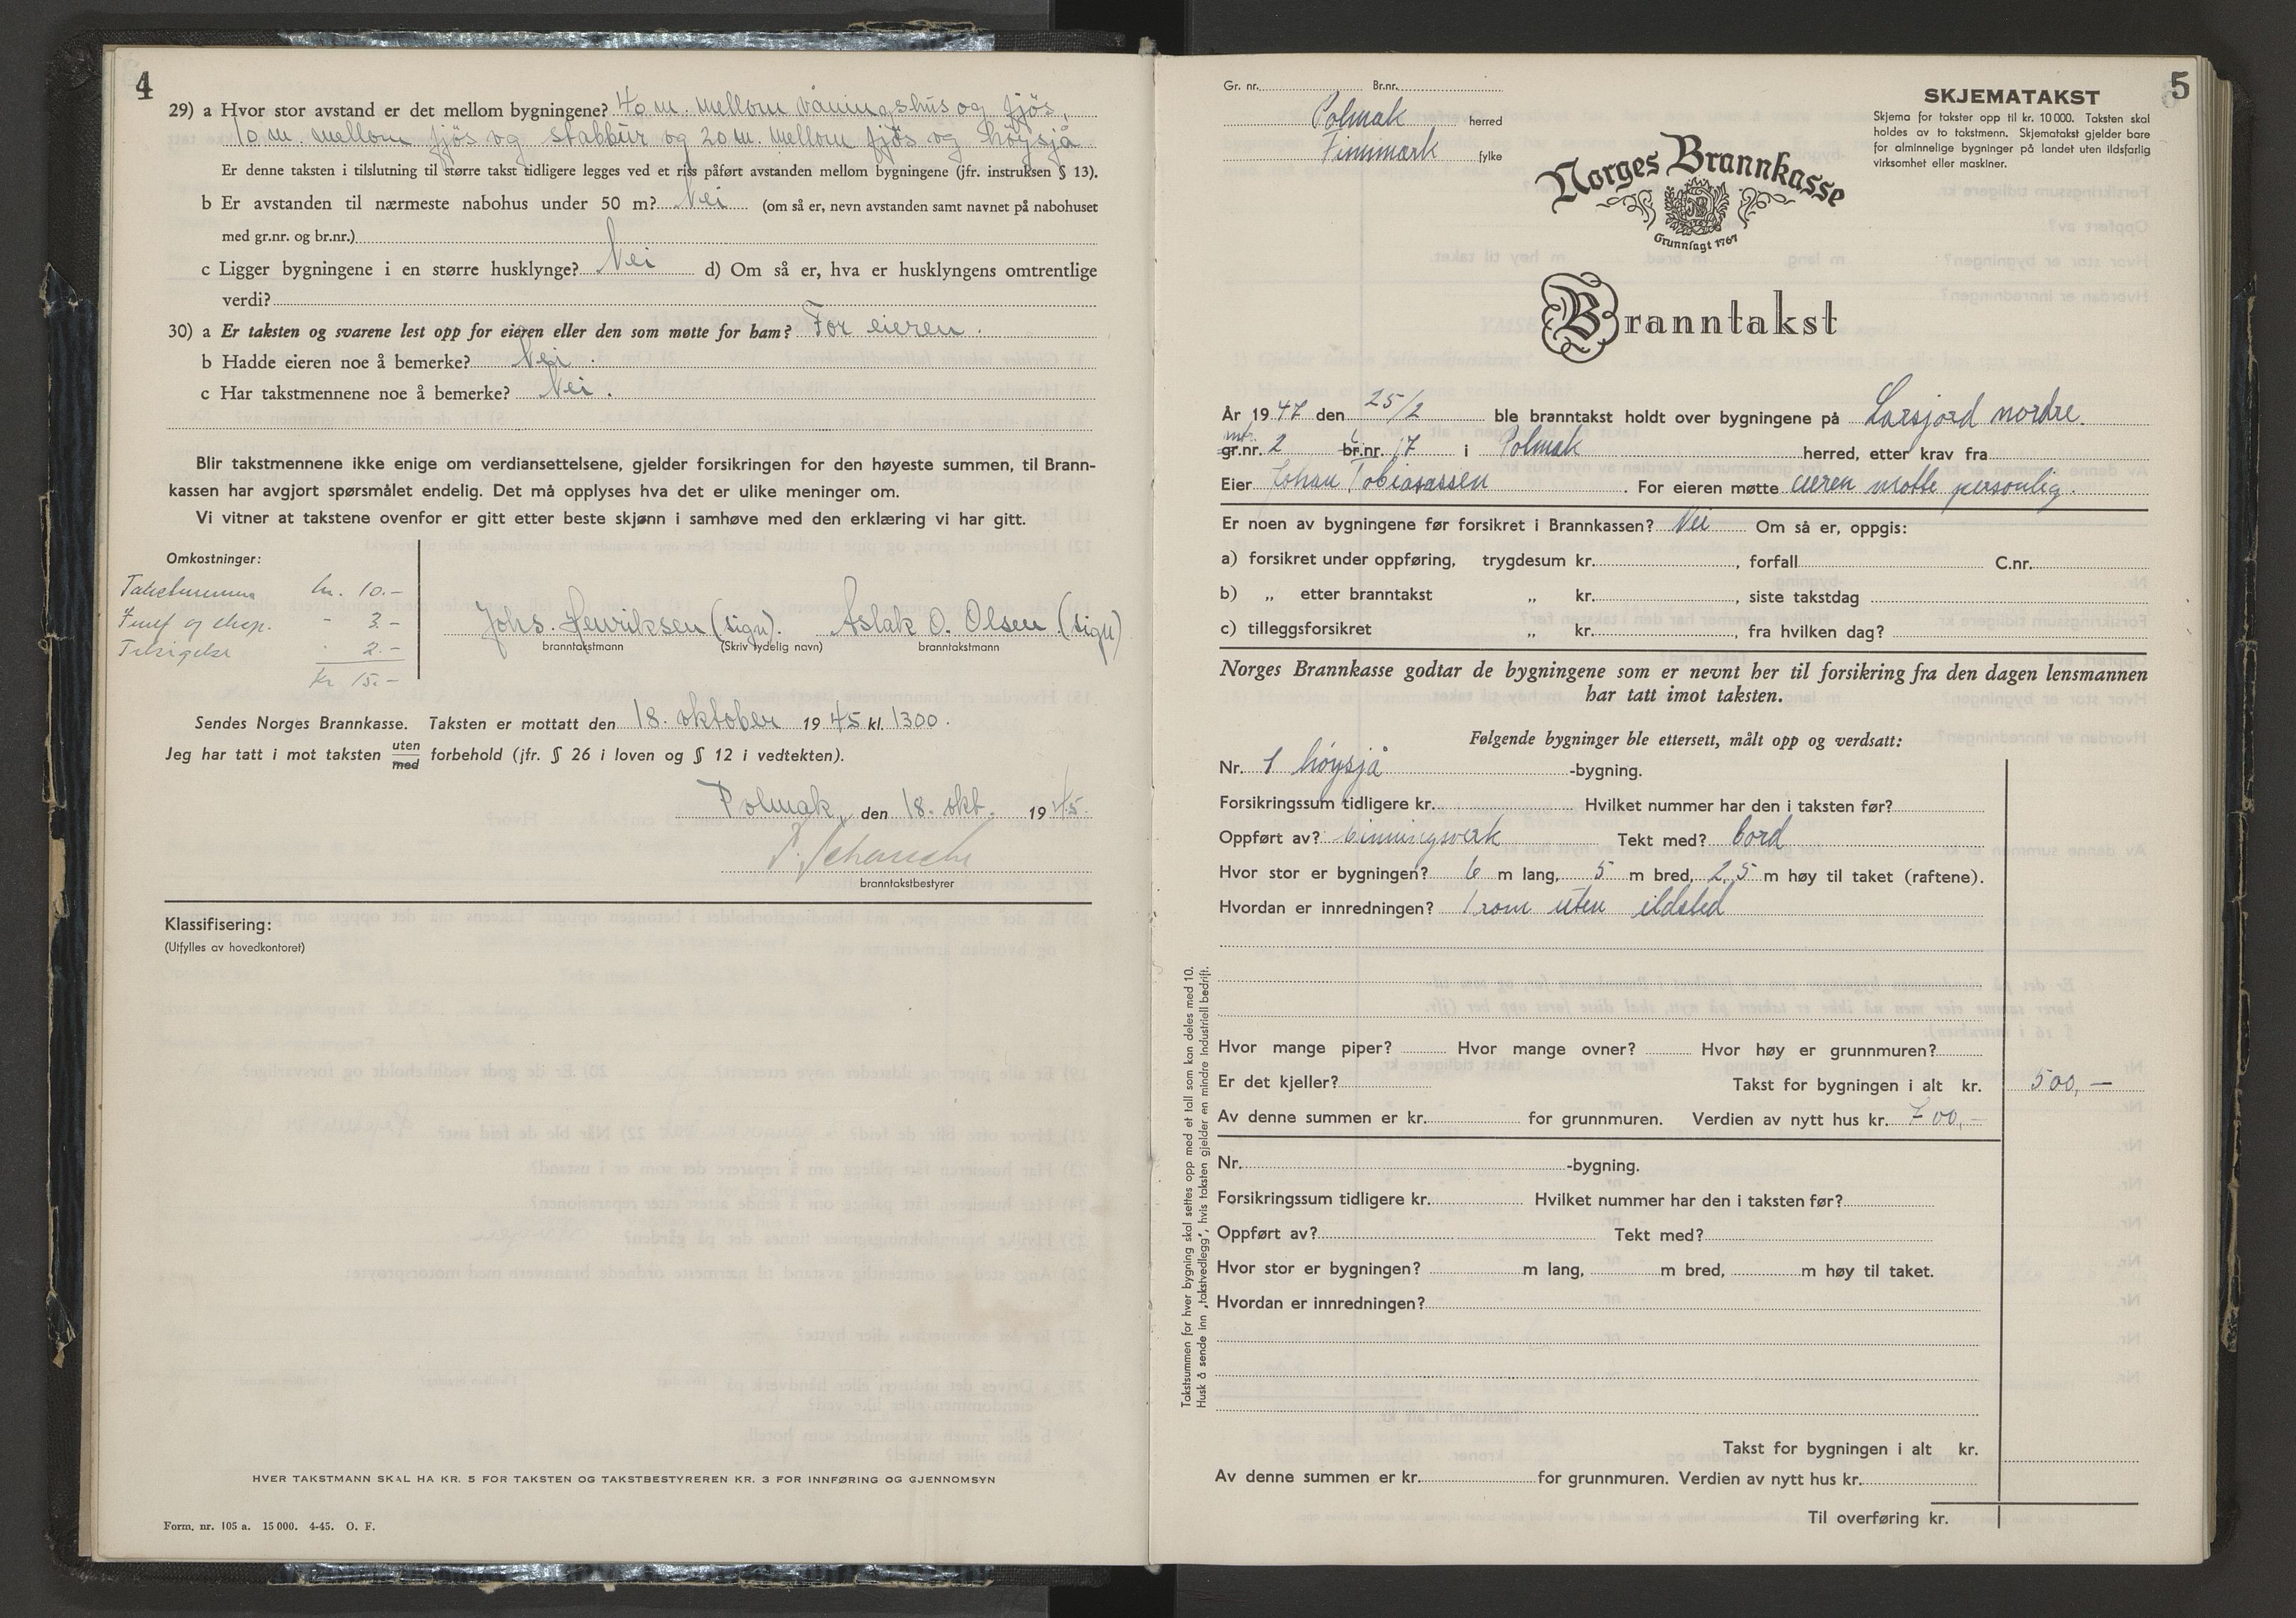 4
29) a Hvor stor avstand er det mellom bygningene? 40 m. mellom våningshus og fjös,
10 m. mellom fjös og stabbur og 20 m. mellom fjös og höysjå
Er denne taksten i tilslutning til større takst tidligere legges ved et riss påført avstanden mellom bygningene (jfr. instruksen § 13).
b Er avstanden til nærmeste nabohus under 50 m? Nei (om så er, nevn avstanden samt navnet på nabohuset
med gr.nr. og br.nr.)
c Ligger bygningene i en større husklynge? Nei d) Om så er, hva er husklyngens omtrentlige
verdi?
30) a Er taksten og svarene lest opp for eieren eller den som møtte for ham? For eieren.
b Hadde eieren noe å bemerke? Nei.
c Har takstmennene noe å bemerke? Nei.
Blir takstmennene ikke enige om verdiansettelsene, gjelder forsikringen for den høyeste summen, til Brann-
kassen har avgjort spørsmålet endelig. Det må opplyses hva det er ulike meninger om.
Vi vitner at takstene ovenfor er gitt etter beste skjønn i samhøve med den erklæring vi har gitt.
Omkostninger:
kr. 10.-
- 3.-
Tilsigelse - 2.-
Kr 15.-
Johs. Henriksen (sign). Aslak O. Olsen (sign)
branntakstmann (Skriv tydelig navn) branntakstmann
Sendes Norges Brannkasse. Taksten er mottatt den 18. oktober 1945 kl. 1300.
Jeg har tatt i mot taksten uten med forbehold (jfr. § 26 i loven og § 12 i vedtekten).
Polmak, den 18. okt. 1945.
P. Schanche
branntakstbestyrer
Klassifisering:
(Utfylles av hovedkontoret)
HVER TAKSTMANN SKAL HA KR. 5 FOR TAKSTEN OG TAKSTBESTYREREN KR. 3 FOR INNFØRING OG GJENNOMSYN
Form. nr. 105 a. 15 000. 4-45. O. F.
5
Gr. nr. Br.nr.
Polmak herred
Finnmark fylke
SKJEMATAKST
Skjema for takster opp til kr. 10 000. Taksten skal
holdes av to takstmenn. Skjematakst gjelder bare
for alminnelige bygninger på landet uten ildsfarlig
virksomhet eller maskiner.
Norges Brannkasse
Grunnlagt 1767
Branntakst
År 1947 den 25/2 ble branntakst holdt over bygningene på Larsjord nordre.
gr.nr. 2 br.nr. 17 i Polmak herred, etter krav fra
Eier Johan Tobiassen. For eieren møtte eieren møtte personlig.
Er noen av bygningene før forsikret i Brannkassen? Nei Om så er, oppgis:
a) forsikret under oppføring, trygdesum kr., forfall C.nr.
b) „ etter branntakst „ kr., siste takstdag
c) tilleggsforsikret „ kr., fra hvilken dag?
Norges Brannkasse godtar de bygningene som er nevnt her til forsikring fra den dagen lensmannen
har tatt imot taksten.
Følgende bygninger ble ettersett, målt opp og verdsatt:
Nr. 1 höysjå -bygning.
Forsikringssum tidligere kr. Hvilket nummer har den i taksten før?
Oppført av? binningsverk Tekt med? bord
Hvor stor er bygningen? 6 m lang, 5 m bred, 2,5 m høy til taket (raftene).
Hvordan er innredningen? 1 rom uten ildsted
Hvor mange piper? Hvor mange ovner? Hvor høy er grunnmuren?
Er det kjeller? Takst for bygningen i alt kr. 500,-
Av denne summen er kr. for grunnmuren. Verdien av nytt hus kr. 700,-
Nr. -bygning.
Forsikringssum tidligere kr. Hvilket nummer har den i taksten før?
Oppført av? Tekt med?
Hvor stor er bygningen? m lang, m bred, m høy til taket.
Hvordan er innredningen?
Takst for bygningen i alt kr.
Av denne summen er kr. for grunnmuren. Verdien av nytt hus kr.
Til overføring kr.
Takstsummen for hver bygning skal settes opp med et tall som kan deles med 10.
Husk å sende inn „takstvedlegg", hvis taksten gjelder en mindre industriell bedrift.